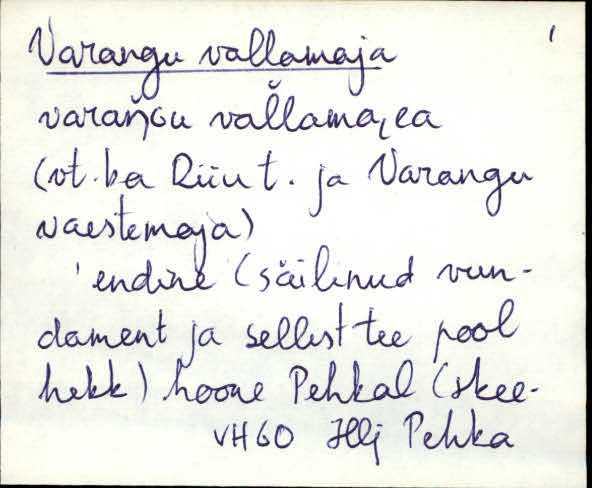 Varangu vallamaja 1
varaŋ̆Gu vaľlama,ea
(vt. ka Riiu t. ja Varangu
vaestemaja)
'endine' (säilinud vun-
dament ja sellest tee pool
hekk) hoone Pehkal (skee-
VH60 Hlj Pehka